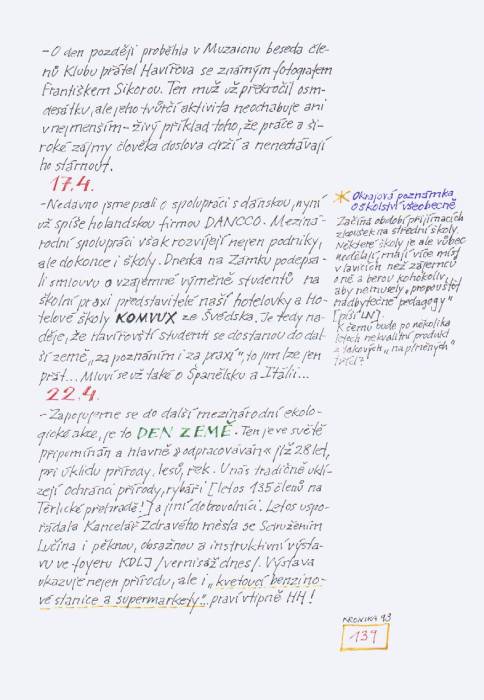 - O den později proběhla v Muzaionu beseda čle-
nů Klubu přátel Havířova se známým fotografem
Františkem Sikorou. Ten muž už překročil osm-
desátku, ale jeho tvůrčí aktivita neochabuje ani
v nejmenším - živý příklad toho, že práce a ši-
roké zájmy člověka doslova drží a nenechávají
ho stárnout.
17.4.
- Nedávno jsme psali o spolupráci s dánskou, nyní
už spíše holandskou firmou DANCCO. Meziná-
rodní spolupráci však rozvíjejí nejen podniky,
ale dokonce i školy. Dneska na Zámku podepsa-
li smlouvu o vzájemné výměně studentů na
školní praxi představitelé naší hotelovky a Ho-
telové školy KOMVUX ze Švédska. Je tedy na-
děje, že havířovští studenti se dostanou do dal-
ší země „za poznáním i za praxí", to jim lze jen
přát... Mluví se už také o Španělsku a Itálii...
22.4.
- Zapojujeme se do další mezinárodní ekolo-
gické akce, je to DEN ZEMĚ. Ten je ve světě
připomínán a hlavně „odpracováván" již 28 let,
při úklidu přírody, lesů, řek. U nás tradičně uklí-
zejí ochránci přírody, rybáři [letos 135 členů na
Těrlické přehradě!] a jiní dobrovolníci. Letos uspo-
řádala Kancelář Zdravého města se Sdružením
Lučina i pěknou, obsažnou a instruktivní výsta-
vu ve foyeru KDLJ /vernisáž dnes/. Výstava
ukazuje nejen přírodu, ale i „kvetoucí benzino-
vé stanice a supermarkety"... praví vtipně HH!
Okrajová poznámka
o školství všeobecně
Začíná období přijímacích
zkoušek na střední školy.
Některé školy je ale vůbec
nedělají, mají více míst
v lavicích než zájemců
o ně a berou kohokoliv,
aby nemusely „propouštět
nadbytečné pedagogy"
[píší LN].
K čemu bude po několika
letech nekvalitní produkt
z takových „naplněných"
KRONIKA 93
139